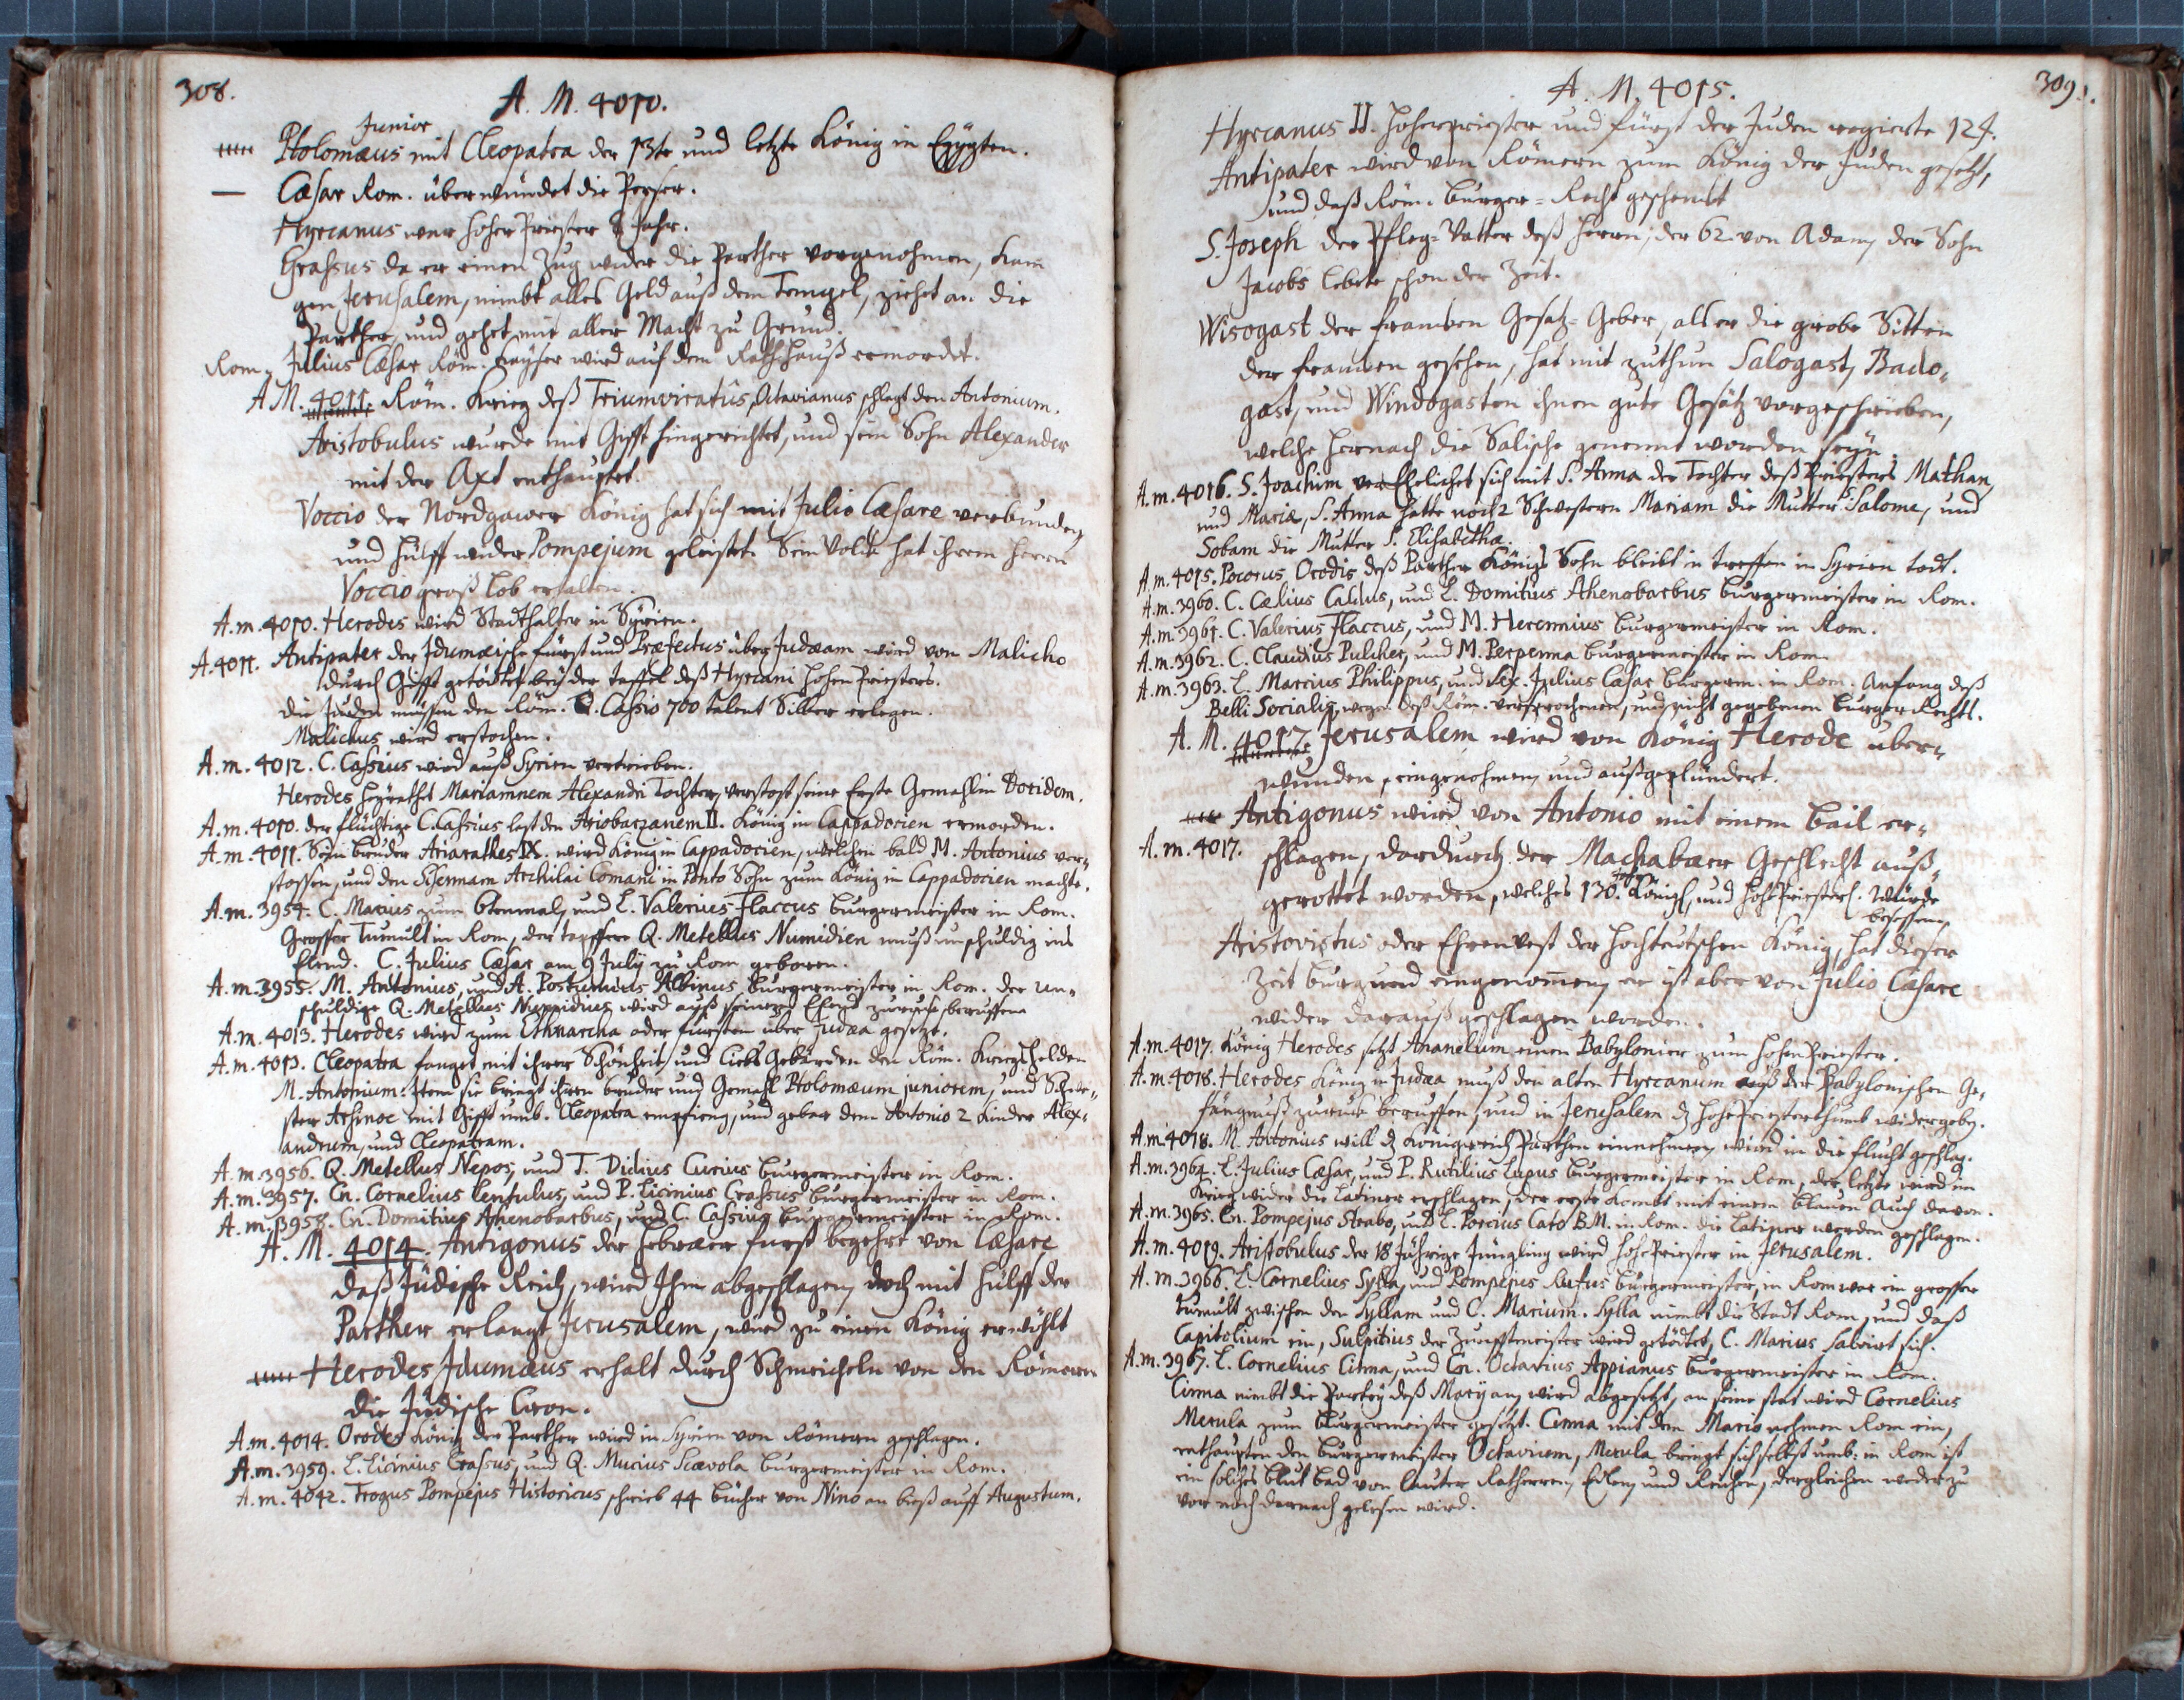 308.
A. M. 4010.
Junior
Ptolomæus mit Cleopatra der 13te und letzte König in Egypten.
— Cæsar Rom. überwündet die Perser.
Hyrcanus war hoher Priester 8 Jahr.
Crassus da er einen Zug wider die Parther vorgenohmen, kam
gen Jerusalem, nimbt alles Geld auß dem Tempel, ziehet an die
Parther, und gehet mit aller Macht zu Grund.
Rom. Julius Cæsar Röm. Kayser wird auf dem Rathhauß ermordet.
A M. 4011. Röm. Krieg deß Triumviratûs, Octavianus schlagt den Antonium.
Aristobulus wurde mit Gifft hingerichtet, und sein Sohn Alexander
mit der Axt enthauptet.
Voccio der Nordgawer König hat sich mit Julio Cæsare verbunden,
und hülff wider Pompejum geleistet. Sein Volck hat ihrem Herrn
Voccio groß lob erhalten.
A. m. 4010. Herodes wird Stadthalter in Syrien.
A. 4011. Antipater der Idumæische fürst und Præfectus über Judæam wird von Malicho
durch Gifft getödtet bey der Taffel deß Hyrcani hohen Priesters.
die Juden müssen dem Röm. C. Cassio 700 talent Silber erlegen.
Malichus wird erstochen.
A. m. 4012. C. Cassius wird auß Syrien vertrieben.
Herodes heyrathet Mariamnem Alexandri Tochter, verstost seine Erste Gemahlin Doridem.
A. m. 4010. der flüchtige C. Cassius last den Ariobarzanem II. König in Cappadocien ermorden.
A. m. 4011. Sein bruder Ariarathes IX. wird König in Cappadocien, welchen bald M. Antonius ver-
stossen, und den Sisennam Archilai Comani in Ponto Sohn zum König in Cappadocien machte.
A. m. 3954. C. Marius zum 6tenmal, und L. Valerius Flaccus burgermeister in Rom.
Grosser Tumult in Rom, der tapffere Q. Metellus Numidien muß unschuldig ins
Elend. C. Julius Cæsar am 9 Julij zu Rom geboren.
A. m. 3955. M. Antonius, und A. Postumius Albinus burgermeister in Rom. der un-
schuldige Q. Metellus Numidius wird auß seinem Elend zuruck beruffen.
A. m. 4013. Herodes wird zum Ethnarcha oder fürsten über Judæa gesetzt.
A. m. 4013. Cleopatra fanget mit ihrer Schönheit, und liebs Gebärden den Röm. Kriegshelden
M. Antonium. Item sie bringt ihren bruder und Gemahl Ptolomæum juniorem, und Schwe-
ster Arsinoe mit Gifft umb. Cleopatra empfieng, und gebar dem Antonio 2 Kinder Alex-
andrum, und Cleopatram.
A. m. 3956. Q. Metellus Nepos, und T. Didius Curius burgermeister in Rom.
A. m. 3957. Cn. Cornelius Lentulus, und P. Licinius Crassus burgermeister in Rom.
A. m. 3958. Cn. Domitius Athenobarbus, und C. Cassius burgermeister in Rom.
A. M. 4014. Antigonus der Hebræer fürst begehrt von Cæsare
daß Jüdische Reich, wird Ihm abgeschlagen, doch mit hülff der
Parther erlangt Jerusalem, wird zu einen König erwöhlt
Herodes Idumæus erhalt durch Schmeicheln von den Römern
die Jüdische Cron.
A. m. 4014. Orodes König der Parther wird in Syrien von Römern geschlagen.
A. m. 3959. L. Licinius Crassus, und Q. Mucius Scævola burgermeister in Rom.
A. m. 4042. Trogus Pompejus Historicus schrieb 44 bücher von Nino an biß auff Augustum.
309.
A. M. 4015.
Hyrcanus II. Hoherpriester und fürst der Juden regierte 124.
Antipater wird von Römern zum König der Juden gesetzt,
und daß Röm. Burger-Recht geschenkt
S. Joseph der Pfleg-Vatter deß Herrn, der 62. von Adam, der Sohn
Jacobs lebete schon der Zeit.
Wisogast der francken Gesatz-Geber, als er die grobe Sitten
der francken gesehen, hat mit zuthun Salogast, Bado-
gast, und Windogasten ihnen gute Gesätz vorgeschrieben,
welche hernach die Salische genennt worden seyn.
A. m. 4016. S. Joachim verEhelichet sich mit S. Anna der Tochter deß Priesters Mathan,
und Mariæ, S. Anna hatte noch 2 Schwestern Mariam die Mutter S. Salome, und
Sobam die Mutter S. Elisabethæ.
A. m. 4015. Pocorus Orodis deß Parther Königs Sohn bleibt in treffen in Syrien todt.
A. m. 3960. C. Cælius Caldus, und L. Domitius Athenobarbus burgermeister in Rom.
A. m. 3961. C. Valerius Flaccus, und M. Herennius burgermeister in Rom.
A. m. 3962. C. Claudius Pulcher, und M. Perpenna burgermeister in Rom.
A. m. 3963. L. Marcius Philippus, und Sex. Julius Cæsar burgerm. in Rom. Anfang deß
Belli Socialis, wegen deß Röm. versprochenen, und nicht gegebenen burger Rechts.
A. M. 4017 Jerusalem wird von König Herode über-
wunden, eingenohmen, und außgeplündert.
Antigonus wird von Antonio mit einem bail er-
A. m. 4017. schlagen, dardurch der Machabæer Geschlecht auß-
gerottet worden, welches 130. Jahr Königl. und hohPriesterl. Würde
besessen.
Aristovistus oder Ehrenvest der hochteutschen König, hat dieser
Zeit burgund eingenomen, er ist aber von Julio Cæsare
wider darauß geschlagen worden.
A. m. 4017. König Herodes setzt Ananelum einen Babylonier zum hohen Priester.
A. m. 4018. Herodes König in Judæa muß den alten Hyrcanum auß der Babylonischen Ge-
fängnuß zuruck beruffen, und in Jerusalem dz hohePriesterthumb widergeben.
A. m. 4018. M. Antonius will dz Königreich Parthen einnehmen, wird in die flucht geschlag.
A. m. 3964. L. Julius Cæsar, und P. Rutilius Lupus burgermeister in Rom, der letzte wird im
Krieg wider die Latiner erschlagen, der erste kombt mit einem blauen Aug davon.
A. m. 3965. Cn. Pompejus Strabo, und L. Porcius Cato B.M. in Rom. die Latiner werden geschlagen.
A. m. 4019. Aristobulus der 18 Jährige Jüngling wird hohePriester in Jerusalem.
A. m. 3966. L. Cornelius Sylla, und Pompejus Rufus burgermeister, in Rom war ein grosser
tumult zwischen den Syllam und C. Marium. Sylla nimbt die Stadt Rom, und daß
Capitolium ein, Sulpitius der Zunfftmeister wird getödtet, C. Marius salvirt sich.
A. m. 3967. L. Cornelius Cinna, und Cn. Octavius Appianus burgermeister in Rom.
Cinna nimbt die Partey deß Marij an, wird abgesetzt, an seine stat wird Cornelius
Merula zum burgermeister gesetzt. Cinna mit dem Mario nehmen Rom ein,
enthaupten den burgermeister Octavium, Merula bringt sich selbst umb: in Rom ist
ein solches blut bad von lauter Ratherren, Edlen, und Reichen, dergleichen weder zu
vor noch darnach gelesen wird.